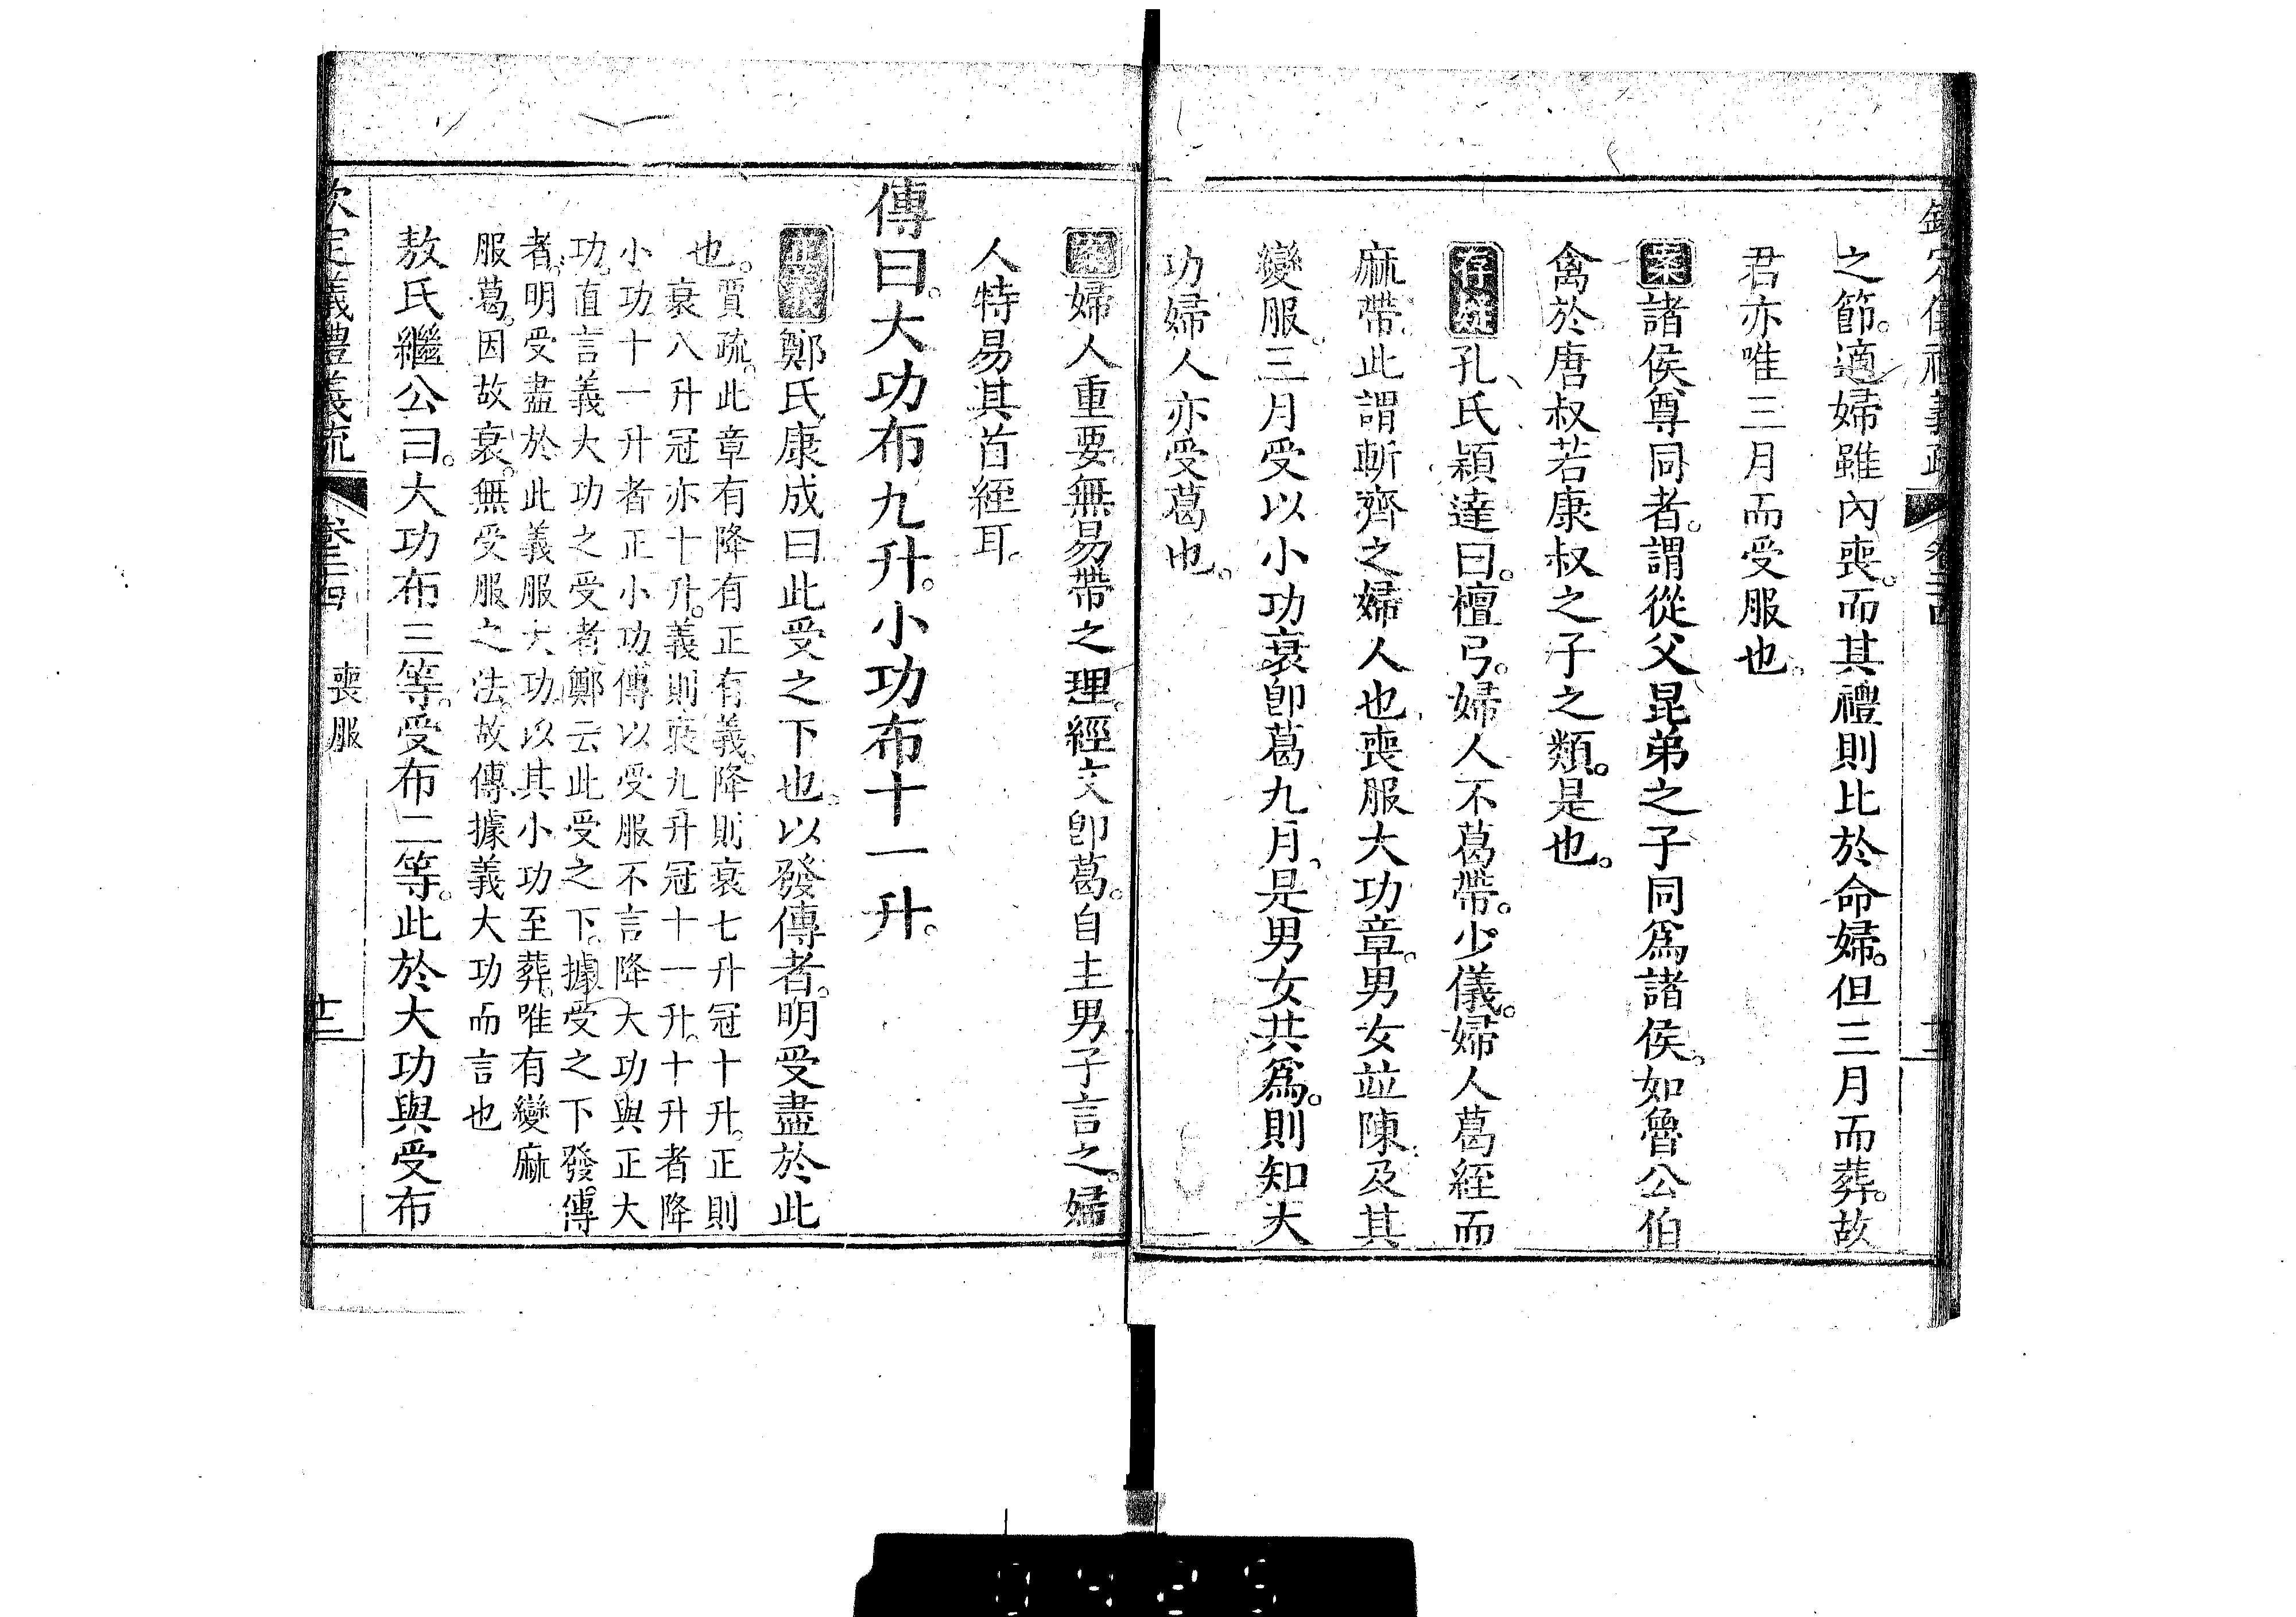 欽定儀禮義疏 卷二十四 十二
之節。適婦雖內喪。而其禮則比於命婦。但三月而葬。故
君亦唯三月而受服也。
案諸侯尊同者。謂從父昆弟之子同爲諸侯。如魯公伯
禽於唐叔若康叔之子之類。是也。
存疑孔氏穎達曰。檀弓。婦人不葛帶。少儀。婦人葛絰而
麻帶。此謂斬齊之婦人也喪服大功章。男女竝陳。及其
變服。三月受以小功衰卽葛九月。是男女共爲。則知大
功婦人亦受葛也。
案婦人重要。無易帶之理。經文卽葛。自主男子言之。婦
人特易其首絰耳。
傳曰。大功布九升。小功布十一升。
正義鄭氏康成曰此受之下也。以發傳者。明受盡於此
也。賈疏。此章有降有正有義。降則衰七升冠十升。正則
衰八升冠亦十升。義則衰九升冠十一升。十升者降
小功十一升者正小功傳以受服不言降大功與正大
功。直言義大功之受者鄭云此受之下。據受之下發傳
者。明受盡於此義服大功以其小功至葬。唯有變麻
服葛。因故衰。無受服之法。故傳據義大功而言也
敖氏繼公曰。大功布三等。受布二等。此於大功與受布
欽定義禮義疏 卷二十四 喪服 十三